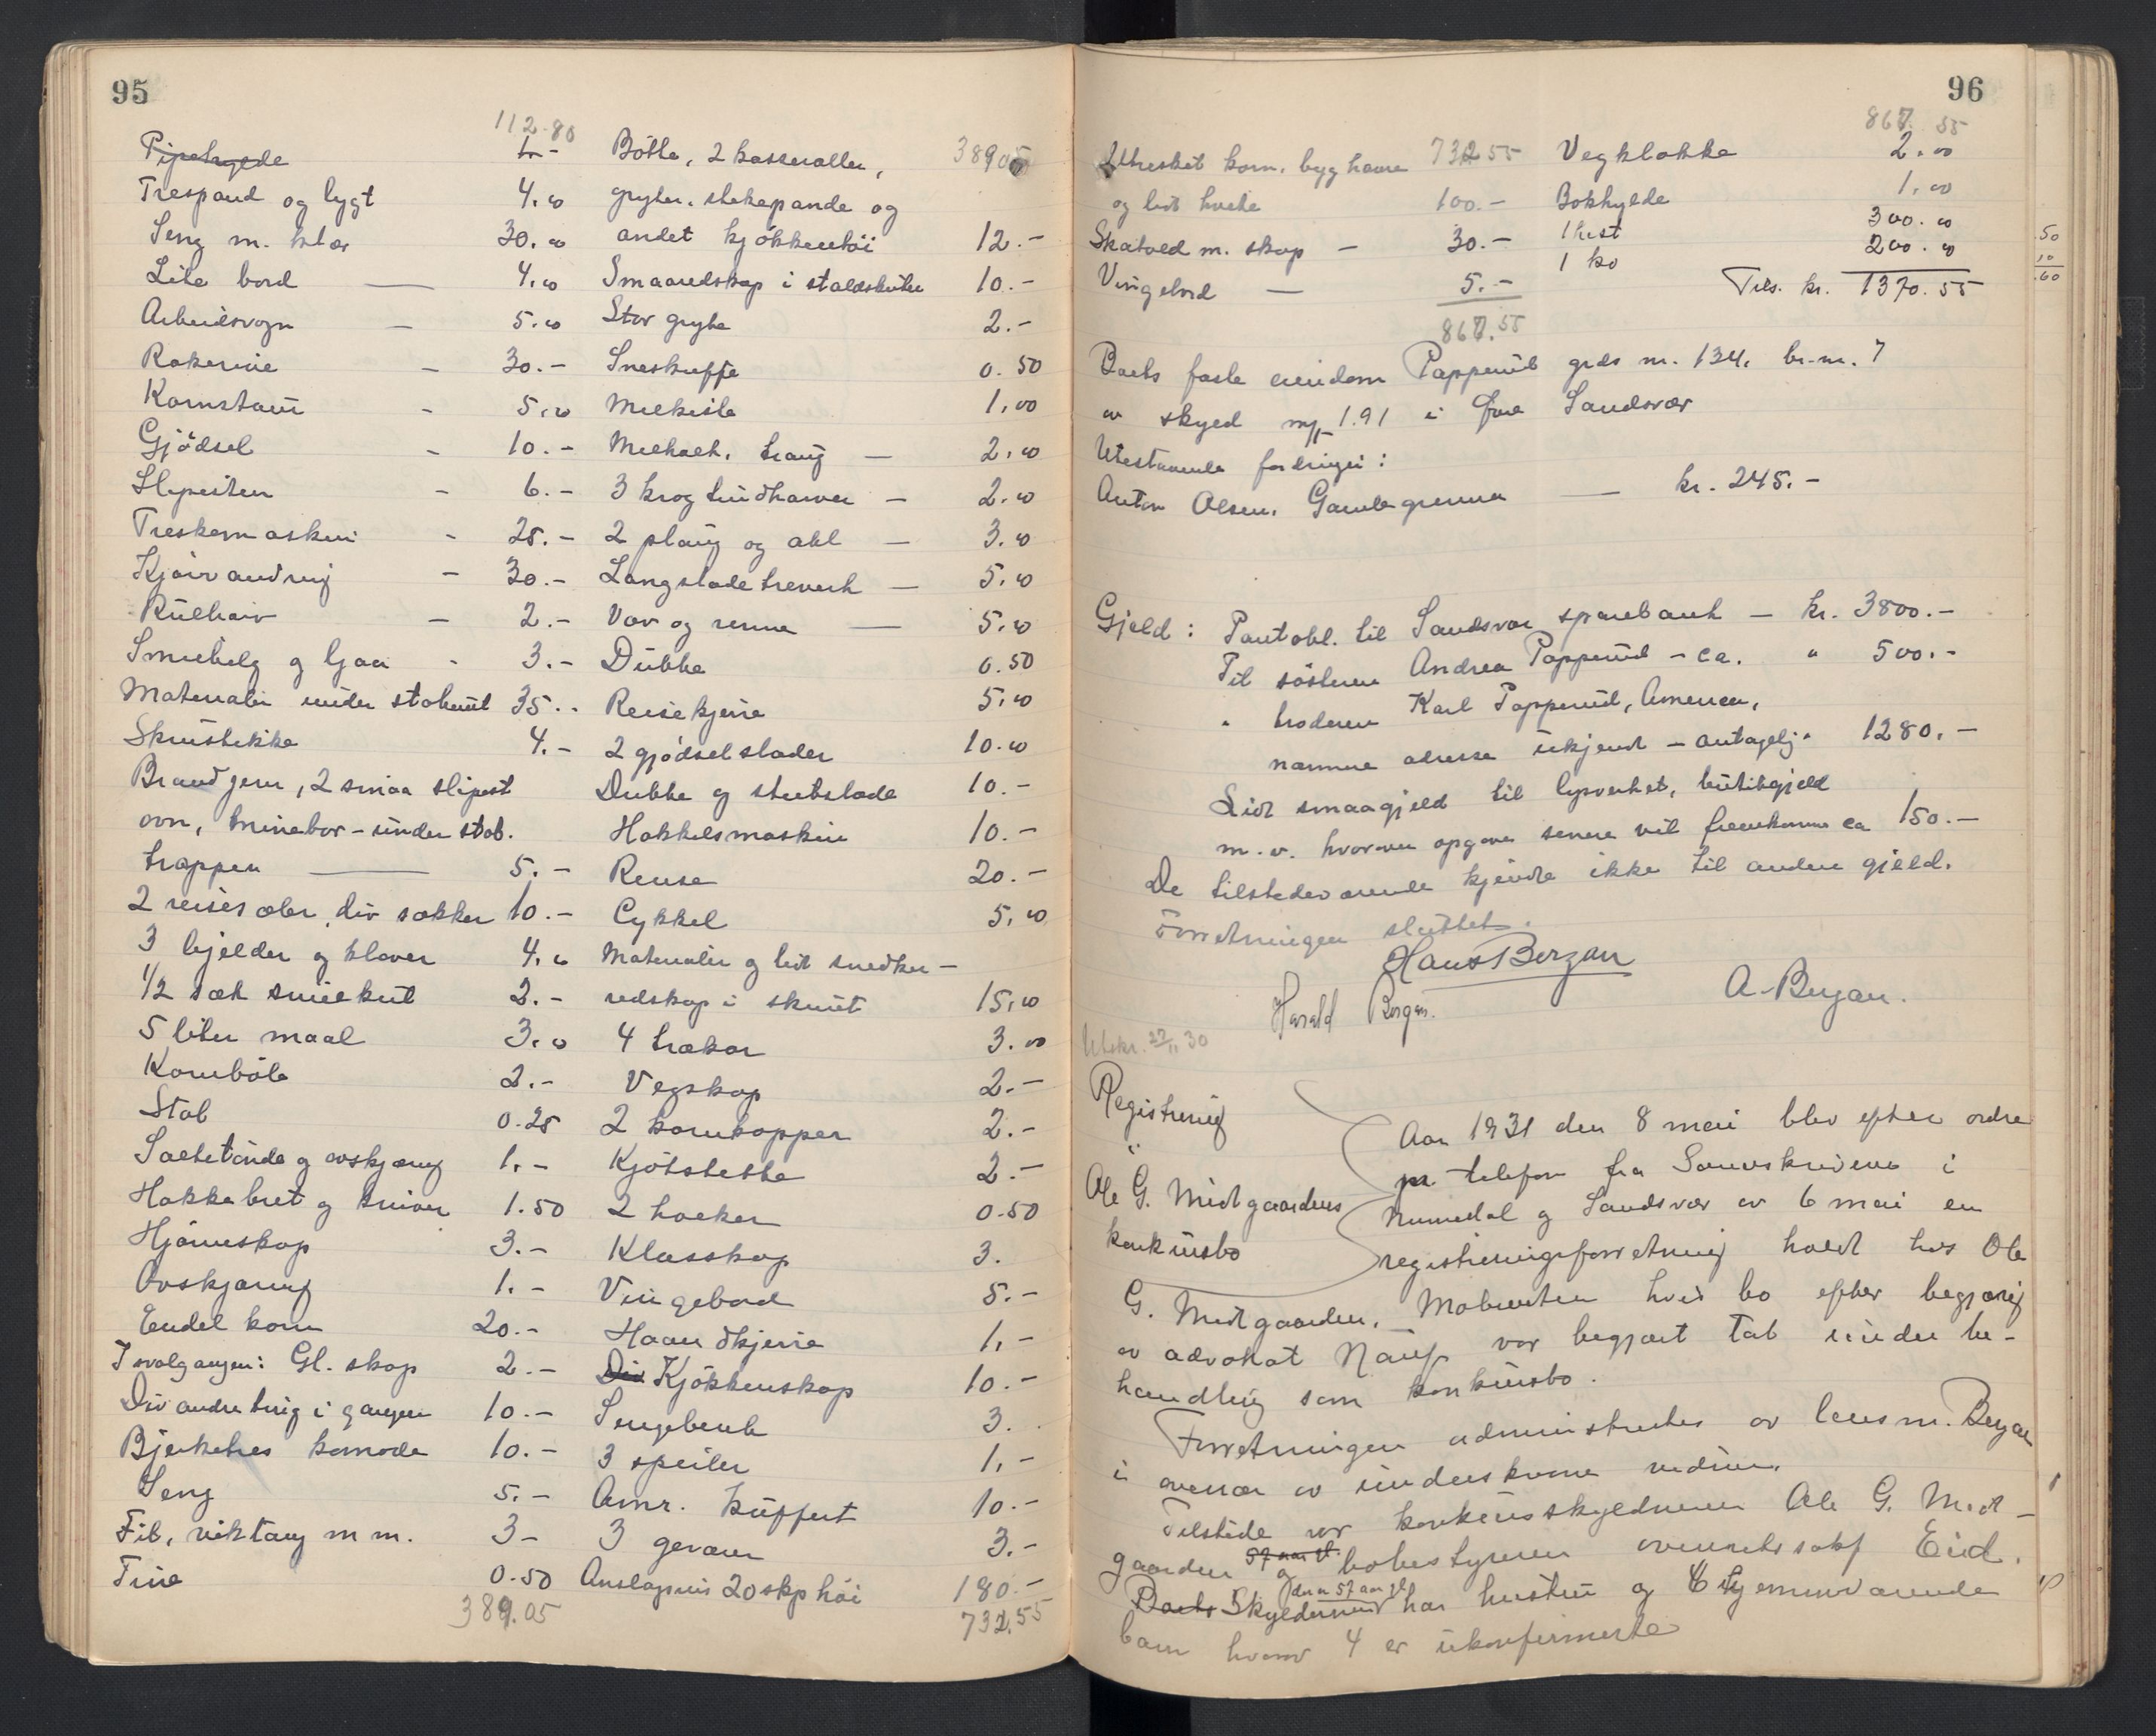 95
112.80
Pipehylde 1.-
Trespand og lygt 4.00
Seng m. klær 30.00
Lite bord 4.00
Arbeidsvogn 5.00
Rakerive 30.-
Kornstaur 5.00
Gjödsel 10.-
Slipesten 6.-
Treskemaskin 25.-
Kjörvandring 30.-
Rulharv 2.-
Smiebelg og ljaa 3.-
Materialer under stabur 35.-
Skrustikke 4.-
Brandjern, 2 smaa slipest
ovn, under stab.
trappen 5.-
2 reisesæler, div sækker 10.-
3 bjelder og klaver 4.00
1/2 sæk smiekul 2.-
5 liter maal 3.00
Kornböle 2.-
Stab 0.25
Saltetönde og avskjæring 1.-
Hakkebret og kniver 1.50
Hjörneskap 3.-
Avskjæring 1.-
Endel korn 20.-
I svalgangen: Gl. skap 2.-
Div andre ting i gangen 10.-
Bjerketres komode 10.-
Seng 5.-
Fil, viktang m m. 3-
Tine 0.50
389.05
389.05
Bötte, 2 kasseroller,
gryter, stekepande og
andet kjökkentöi 12.-
Smaaredskap i staldskuten 10.-
Stor gryte 2.-
Sneskuffe 0.50
Melkiste 1.00
Melkalt. traug 2.00
3 krog tindharver 2.00
2 plaug og akl 3.00
Langslade treverk 5.00
Vav og renne 5.00
Dubbe 0.50
Reisekjerre 5.00
2 gjödselslader 10.00
Dubbe og stutslade 10.-
Hakkelsmaskin 10.-
Rense 20.-
Cykkel 5.00
Materialer og lidt snedker-
redskap i skuret 15.00
4 trækar 3.00
Vegskap 2.-
2 kornkopper 2.-
Kjötstette 2.-
2 hakker 0.50
Klæsskap 3.
Vingebord 5.-
Haandkjerre 1.-
Div Kjökkenskap 10.-
Sengebenk 3.
3 speiler 1.-
Amr. kuffert 10.-
3 geværer 3.-
Anslagsvis 20 skp höi 180.-
732.55
96
Utresket korn, byg havre 732 55
og lidt hvete 100.-
Skatoll m. skap 30.-
Vingebord 5.-
867.55
867.55
Vegklokke 2.00
Bokhylde 1.00
1 hest 300.00
1 ko 200.00
Tils. kr. 1370.55
Boets faste eiendom Papperud grds nr. 134, br.nr. 7
av skyld mrk 1.91 i Sandsvær
Utestaaende fordringer:
Anton Olsen, Gamlegrenna kr. 245.-
Gjeld: Pantobl. til Sandsvær sparebank - kr. 3800.-
Til søsteren Andrea Papperud - ca. " 500.-
" broderen Karl Papperud, Amerika,
nærmere adresse ukjendt - antagelig " 1280.-
Lidt smaagjeld til lysverket, butikgjeld
m.v. hvorover opgave senere vil fremkomme ca 150.-
De tilstedeværende kjendte ikke til anden gjeld.
Forretningen sluttet.
Hans Bergan
Harald Bergan. A. Bergan.
Utskr. 27/11 30
Registrering
Ole G. Midtgaardens
konkursbo
Aar 1931 den 8 mai blev efter ordre
pr. telefon fra Sorenskriveren i
Numedal og Sandsvær av 6 mai en
registreringsforretning holdt hos Ole
G. Midtgaarden, hvis bo efter begjæring
av advokat Naup var begjært tat under be-
handling som konkursbo.
Forretningen administrertes av lensm. Bergan
i overvær av underskrevne vidner.
Tilstede var konkursskyldneren Ole G. Midt-
gaarden 57 aar gl. og bobestyreren overretssakf Eid.
Boets Skyldneren der er 57 aar gl har hustru og 6 hjemmeværende
barn hvorav 4 er ukonfirmerte